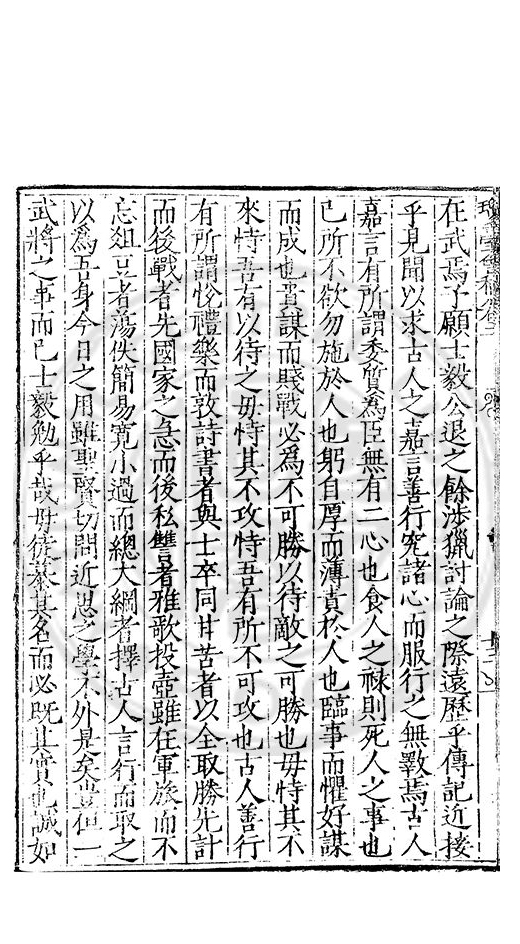 在武焉予願士毅公退之餘涉獵討論之際遠歷乎傳記近接
乎見聞以求古人之嘉言善行究諸心而服行之無斁焉古人
嘉言有所謂委質為臣無有二心也食人之祿則死人之事也
己所不欲勿施於人也躬自厚而薄責於人也臨事而懼好謀
而成也貴謀而賤戰必為不可勝以待敵之可勝也毋恃其不
來恃吾有以待之毋恃其不攻恃吾有所不可攻也古人善行
有所謂悅禮樂而敦詩書者與士卒同甘苦者以全取勝先計
而後戰者先國家之急而後私讐者雅歌投壺雖在軍旅而不
忘俎豆者蕩佚簡易寬小過而總大綱者擇古人言行而取之
以為吾身今日之用雖聖賢切問近思之學不外是矣豈但一
武將之事而已士毅勉乎哉毋徒慕其名而必既其實也誠如